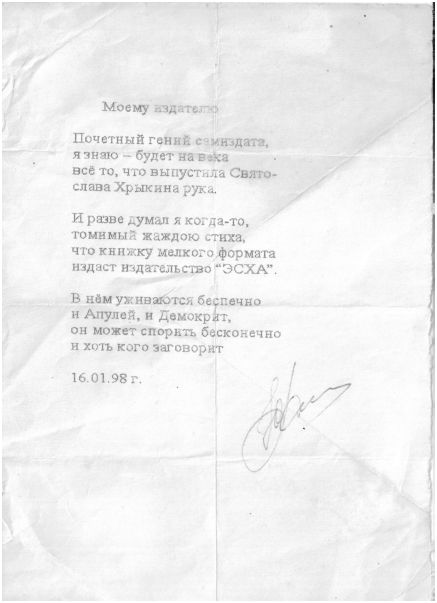 Моему издателю
Почетный гений самиздата,
я знаю – будет на века
всё то, что выпустила Свято-
слава Хрыкина рука.
И разве думал я когда-то,
томимый жаждою стиха,
что книжку мелкого формата
издаст издательство “ЭСХА”.
В нём уживаются беспечно
и Апулей, и Демокрит,
он может спорить бесконечно
и хоть кого заговорит
16.01.98 г.